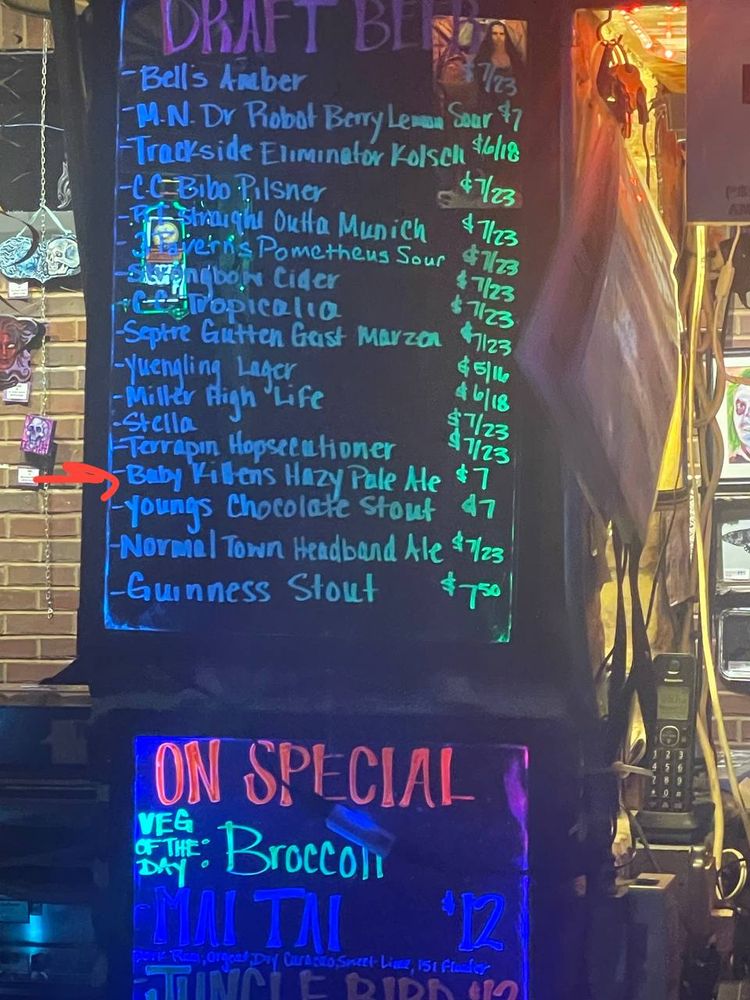 DRAFT BEER
-Bell's Amber $7/23
-M.N. Dr Robot Berry Lemon Sour $7
-Trackside Eliminator Kolsch $6/18
-C.C. Bibo Pilsner $7/23
Straight Outta Munich $7/23
-3 Taverns Pometheus Sour $7/23
-Strongbow Cider $7/23
-C.C. Tropicalia $7/23
-Septre Gutten Geist Marzen $7/23
-Yuengling Lager $5/16
-Miller High Life $6/18
-Stella $7/23
-Terrapin Hopsecutioner $7/23
-Baby Kittens Hazy Pale Ale $7
-Youngs Chocolate Stout $7
-Normal Town Headband Ale $7/23
-Guinness Stout $7.50
ON SPECIAL
VEG
OF THE
DAY: Broccoli
-MAI TAI $12
Rum, Orgeat, Dry Curacao, Sweet Lime, 151 Floater
JUNGLE BIRD $12